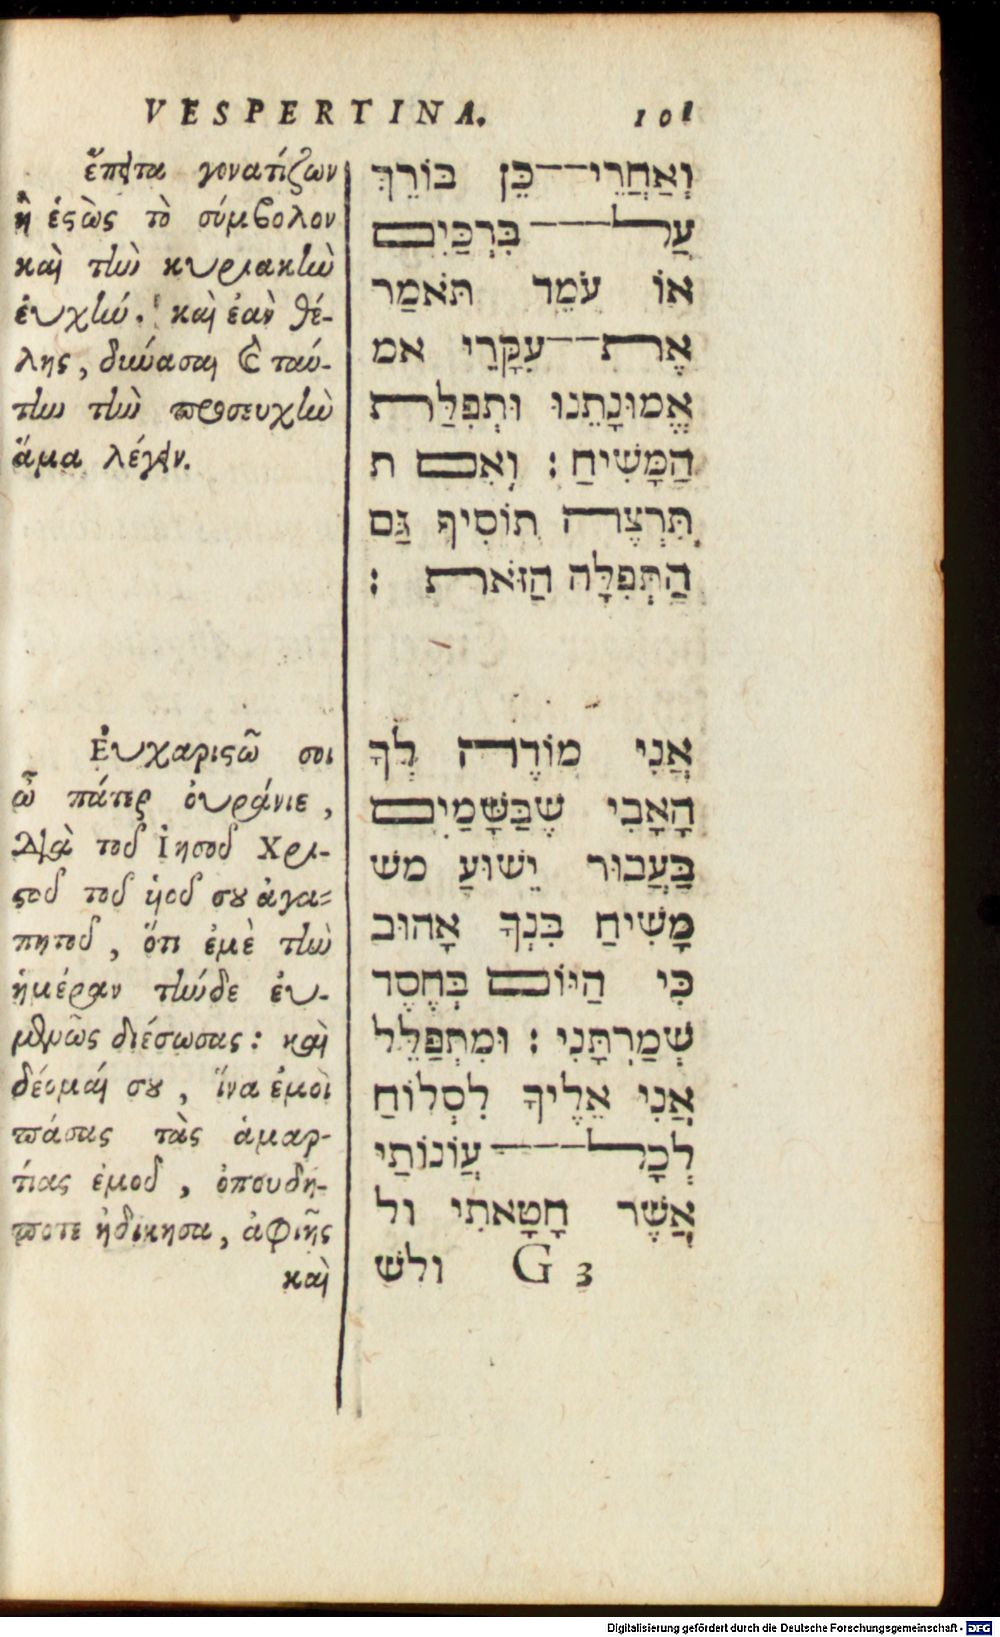 VESPERTINA. 101
ἔπειτα γονατίζων
ἢ ἑστὼς τὸ σύμβολον
καὶ τὴν κυριακὴν
εὐχήν. καὶ ἐὰν θέ-
λης, δυνάσαι καὶ ταύ-
την τὴν προσευχὴν
ἅμα λέγειν.
Εὐχαριστῶ σοι
ὦ πάτερ οὐράνιε,
διὰ τοῦ Ἰησοῦ Χρι-
στοῦ τοῦ ὑοῦ σου ἀγα-
πητοῦ, ὅτι ἐμὲ τὴν
ἡμέραν τήνδε εὐ-
μενῶς διέσωσας: καὶ
δέομαί σου, ἵνα ἐμοὶ
πάσας τὰς ἁμαρ-
τίας ἐμοῦ, ὁπουδή-
ποτε ἠδίκησα, ἀφιῇς
καὶ
וְאַחֲרֵי כֵּן בּוֹרֵךְ
עַל בִּרְכַּיִם
אוֹ עֹמֵד תֹּאמַר
אֶת עִקָּרֵי אמ
אֱמוּנָתֵנוּ וּתְפִלַּת
הַמָּשִׁיחַ : וְאִם ת
תִּרְצֶה תוֹסִיף גַּם
הַתְּפִלָּה הַזֹּאת :
אֲנִי מוֹדֶה לְךָ
הָאָבִי שֶׁבַּשָּׁמַיִם
בַּעֲבוּר יֵשׁוּעַ מש
מָשִׁיחַ בִּנְךָ אָהוּב
כִּי הַיּוֹם בְּחֶסֶד
שְׁמַרְתָּנִי : וּמִתְפַּלֵּל
אֲנִי אֵלֶיךָ לִסְלוֹחַ
לְכָל עֲוֹנוֹתַי
אֲשֶׁר חָטָאתִי ול
G 3 ולש
Digitalisierung gefördert durch die Deutsche Forschungsgemeinschaft - DFG